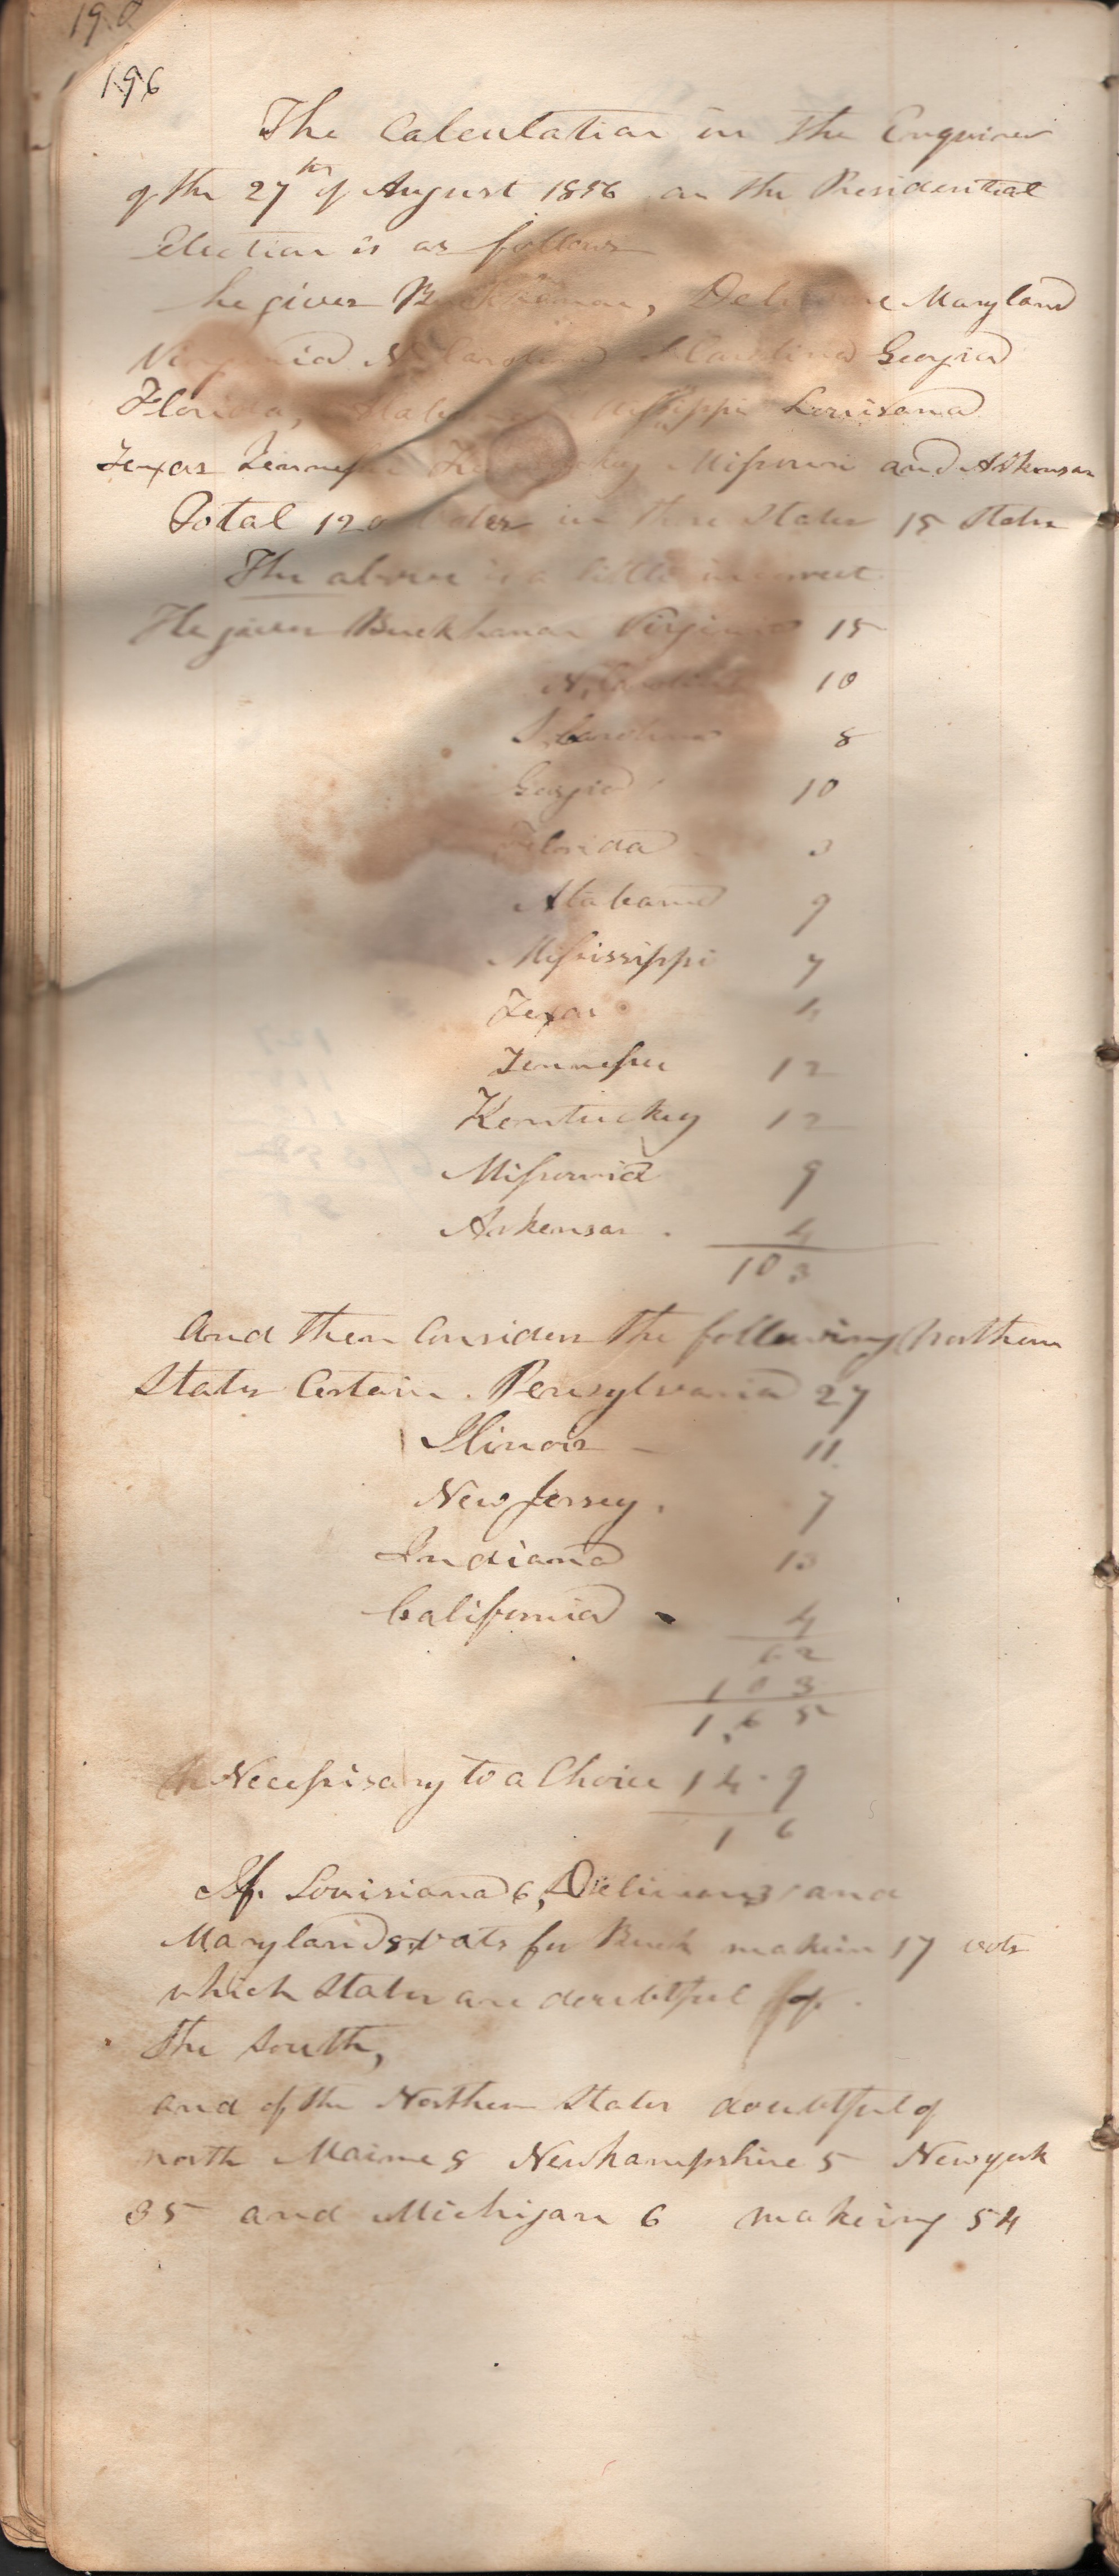 196
The Calculation in the Enquirer
of the 27th of August 1856 on the Presidential
Election is as follows
he gives Delaware Maryland
Virginia N. Carolina S. Carolina Georgia
Florida, Alabama Mississippi Louisana
Texas Tennessee Kentucky Missouri and Arkensas
Total 120 votes in these States 15 States
The above is a little incorrect
He gives Buckhanan Virginia 15
N, Carolina 10
S, Carolina 8
Georgia 10
Florida 3
Alabama 9
Mississippi 7
Texas 4
Tennessee 12
Kentucky 12
Missouria 9
Arkensas . 4
103
And then Considers the following Northern
States Certain . Pensylvania 27
Ilinois - 11
New Jersey . 7
Indiana 13
California - 4
62
103
1,65
Necessisary to a Choice 149
16
If. Louisiana 6, Deliware 3 and
Maryland 8 vots for Buck makin 17 vots
which States are doubtful of .
the South,
and of the Northern States doubtful of
north Maine 8 Newhampshire 5 Newyork
35 and Michigan 6 making 54